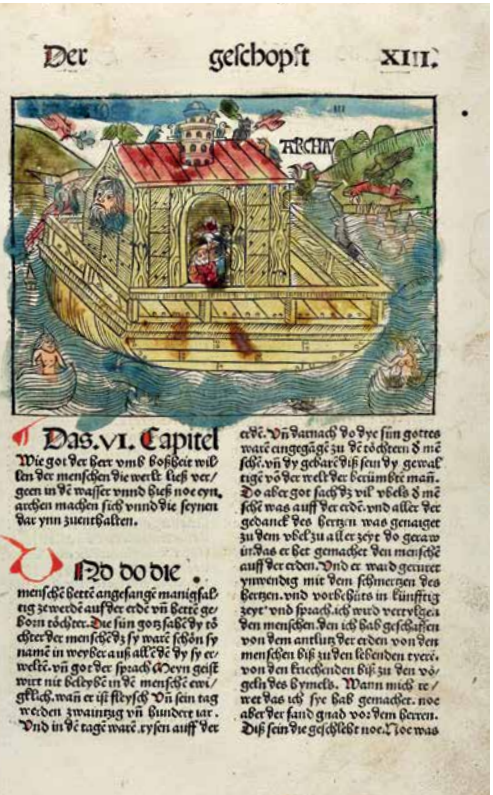 Der geschopft XIII.
ARCHA
Das .VI. Capitel
Wie got der herr vmb boßheit wil/
len der menschen die werlt ließ ver/
geen in dē wasser vnnd hieß noe eyn.
archen machen sich vnnd die seynen
dar ynn zuenthalten.
VNd do die
menschen hettē angefangē manigfal/
tig zewerdē auf der erdē vn̄ hettē ge/
born tőchter. Die sün gotz sahē dy tő
chter der menschē dz sy warē schőn sy
namē in weyber auß allē dē dy sy er/
weltē. vn̄ got der sprach Meyn geist
wirt nit beleybē in dē menschē ewi/
gklich. wan̄ er ist fleysch Vn̄ sein tag
werden zwaintzig vn̄ hundert iar.
Vnd in dē tagē warē rysen auff der
erdē. Vn̄ darnach do dye sün gottes
warē eingegāgē zu dē tőchtern d̄ mē
schē. vn̄ dy gebarē diß sein dy gewal
tigē vō der welt der berümbtē man̄.
Do aber got sach dz vil vbels d̄ mē
schē was auff der erdē. vnd aller der
gedanck des hertzen was genaiget
zu dem vbel zu aller zeyt do geraw
in. das er het gemachet den menschē
auff der erden. Vnd er ward gerüret
ynwendig mit dem schmertzen des
hertzen. vnd vorbehüts in künfftig
zeyt vnd sprach. ich wird vertylgē
den menschen. den ich hab geschaffen
von dem antlutz der erden von den
menschen biß zu den lebenden tyerē.
von den kriechenden biß zu den vő/
geln des hymels. Wann mich re/
wet das ich sye hab gemachet. noe
aber der fand gnad vor dem herren.
Diß sein die geschlecht noe. Noe was